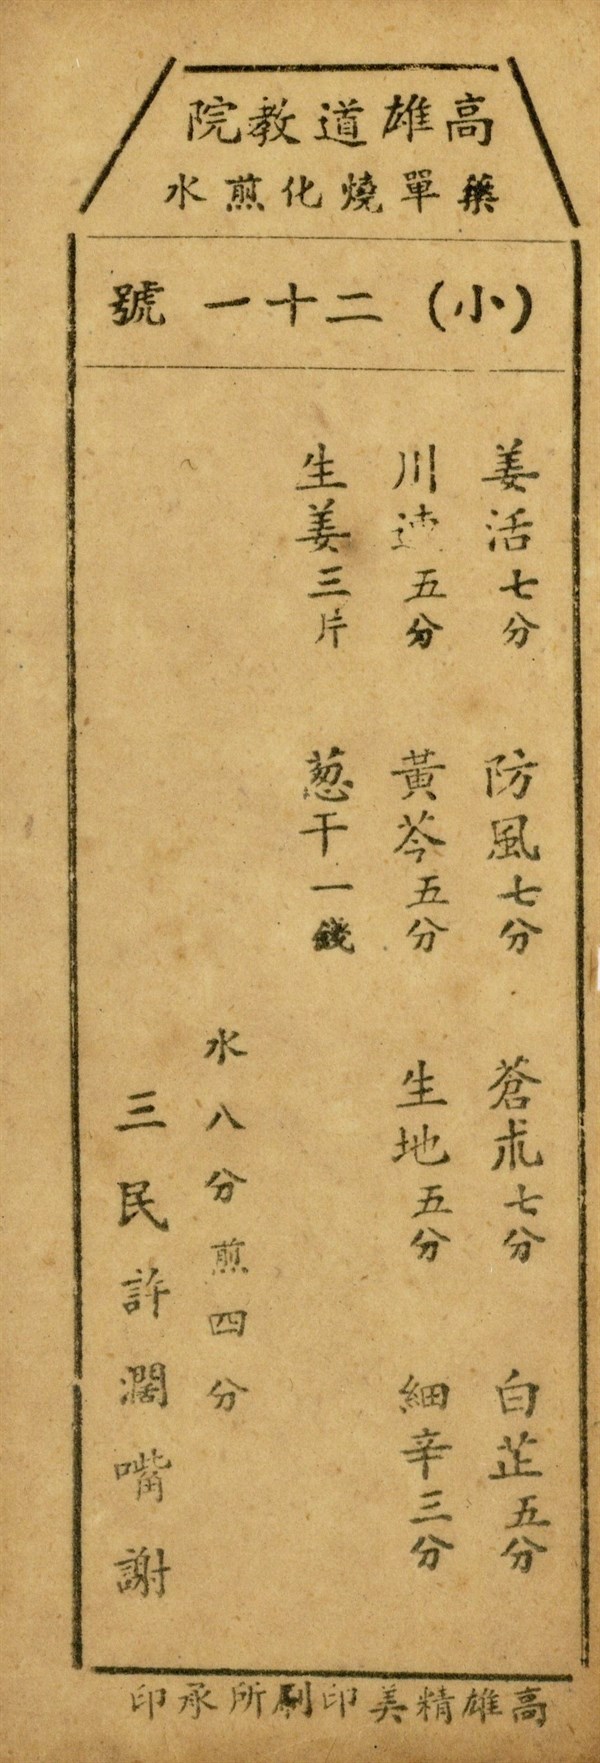 高雄道教院
藥單燒化煎水
(小)二十一號
姜活七分 防風七分 蒼朮七分 白芷五分
川連五分 黃芩五分 生地五分 細辛三分
生姜三片 葱干一錢
水八分煎四分
三民許濶嘴謝
高雄精美印刷所承印